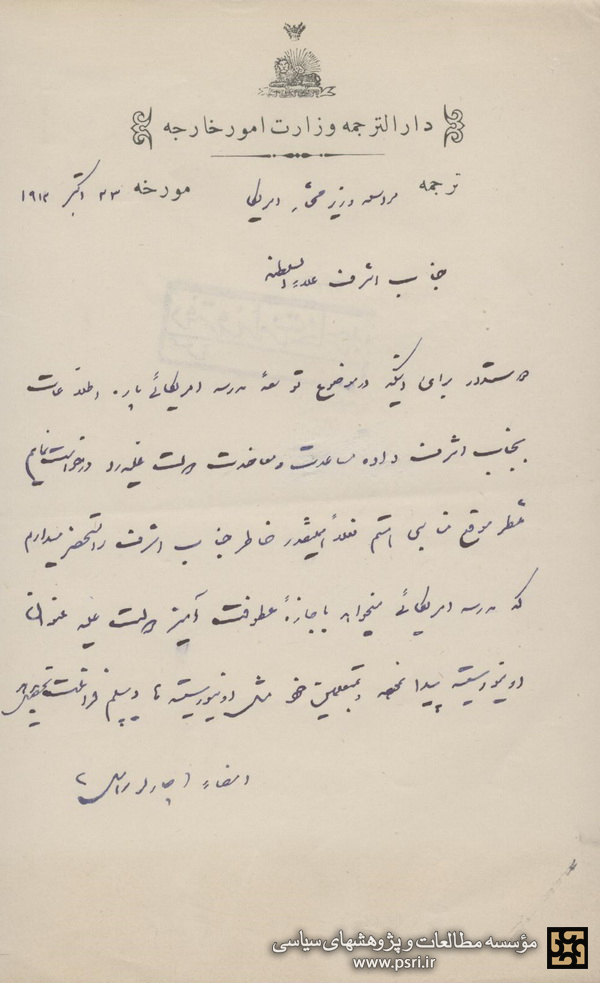 دارالترجمه وزارت امور خارجه
ترجمه مراسله وزیر مختار امریکا مورخه ۲۳ اکتبر ۱۹۱۲
جناب اشرف علاءالسلطنه
دوستدار برای اینکه در موضوع توسعهٔ مدرسه امریکائی پاره اطلاعات
بجناب اشرف داده مساعدت و معاضدت دولت علیه را درخواست نمایم
منتظر موقع مناسبی هستم فعلاً اینقدر خاطر جناب اشرف را مستحضر میدارم
که مدرسه امریکائی میخواهد با اجازهٔ عطوفت آمیز دولت علیه عنوان
اونیورسیته پیدا نموده و بمتعلمین خود مثل اونیورسیته ها دیپلم فراغت تحصیل
امضاء (چارلز راسل)
مؤسسه مطالعات و پژوهشهای سیاسی
www.psri.ir